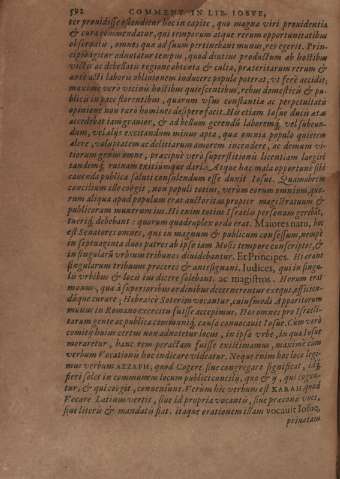 592 COMMENT. IN LIB. IOSVE,
ter prouidisse ostenditur hoc in capite, quo magna viri prouidentia
& cura commendatur, qui temporum atque rerum opportunitatibus
obseruatis, omnes qua ad suum pertinebant munus, res egerit. Prin-
cipio igitur adnotatur tempus, quod diutius productum ab hostibus
victis ac debellatis regione obtenta & culta, præteritarum rerum &
ante acti laboris obliuionem inducere populo poterat, vt ferè accidit,
maxime verò vicinis hostibus quiescentibus, rebus domesticis & pu-
blica in pace florentibus, quarum vsus constantia ac perpetuitatis
opinione non raro homines desipere facit. Ad
accedebat iam grauior, & ad bellum gerendi laborem
dum, vel alus excitandum minus apta, qua omnia populo quietem
alere, voluptatem ac delitiarum amorem incendere, ac demum vi-
tiorum genus omne, præcipuè verò superstitionis licentiam largiri
tandemq. ruinam nostris que dari. Atque hac mala opportune sibi
cauenda publica saluti consulendum esse duxit Iosue. Quamobrem
concilium allo cogit, non populi totius, verùm eorum omnium, quo-
rum aliqua apud populum erat auctoritas propter magistratuum &
publicorum munerum ius. Hi enim totius Israelis personam gerebat,
tuerisq. debebant: quorum quadruplex ordo erat. Maiores natu, hoc
est Senatores omnes, qui in magnum & publicum consessum, nempè
in septuaginta duos patres ab ipso iam Mosis tempore conscriptos, &
in singularū vrbium tribunos diuidebantur. Et Principes. Hi erant
singularum tribuum proceres & antesignani. Iudices, qui in singu-
lis vrbibus & locis ius dicere solebant. ac magistros. Horum erat
munus, qua à superioribus ordinibus decernerentur exequi, efficien-
dáque curare; Hebraicè Soterim vocantur, cuiusmodi Apparitorum
munus in Romano exercitu fuisse accepimus. Hos omnes pro Israeli-
tarum gente ac publica communiq. causa conuocauit Iosue. Cum verò
comitij huius certus non adnotetur locus, in ipsa vrbe, in qua Iosue
moraretur, hanc rem peractam fuisse existimamus, maximè cùm
verbum Vocationis hoc indicare videatur. Neque enim hoc loco legi-
mus verbum AZZAPH, quod Cogere siue congregare significat, idq.
fieri solet in communem locum publici concilij, quo & ij, qui cogun-
tur, & qui cogit, conueniunt. Verùm hic verbum est KARAH quod
Vocare Latinum vertit, siue id propria vocantis, siue præconis voci,
siue literis & mandatis fiat. itaque orationem istam vocauit Iosue,
priuatam